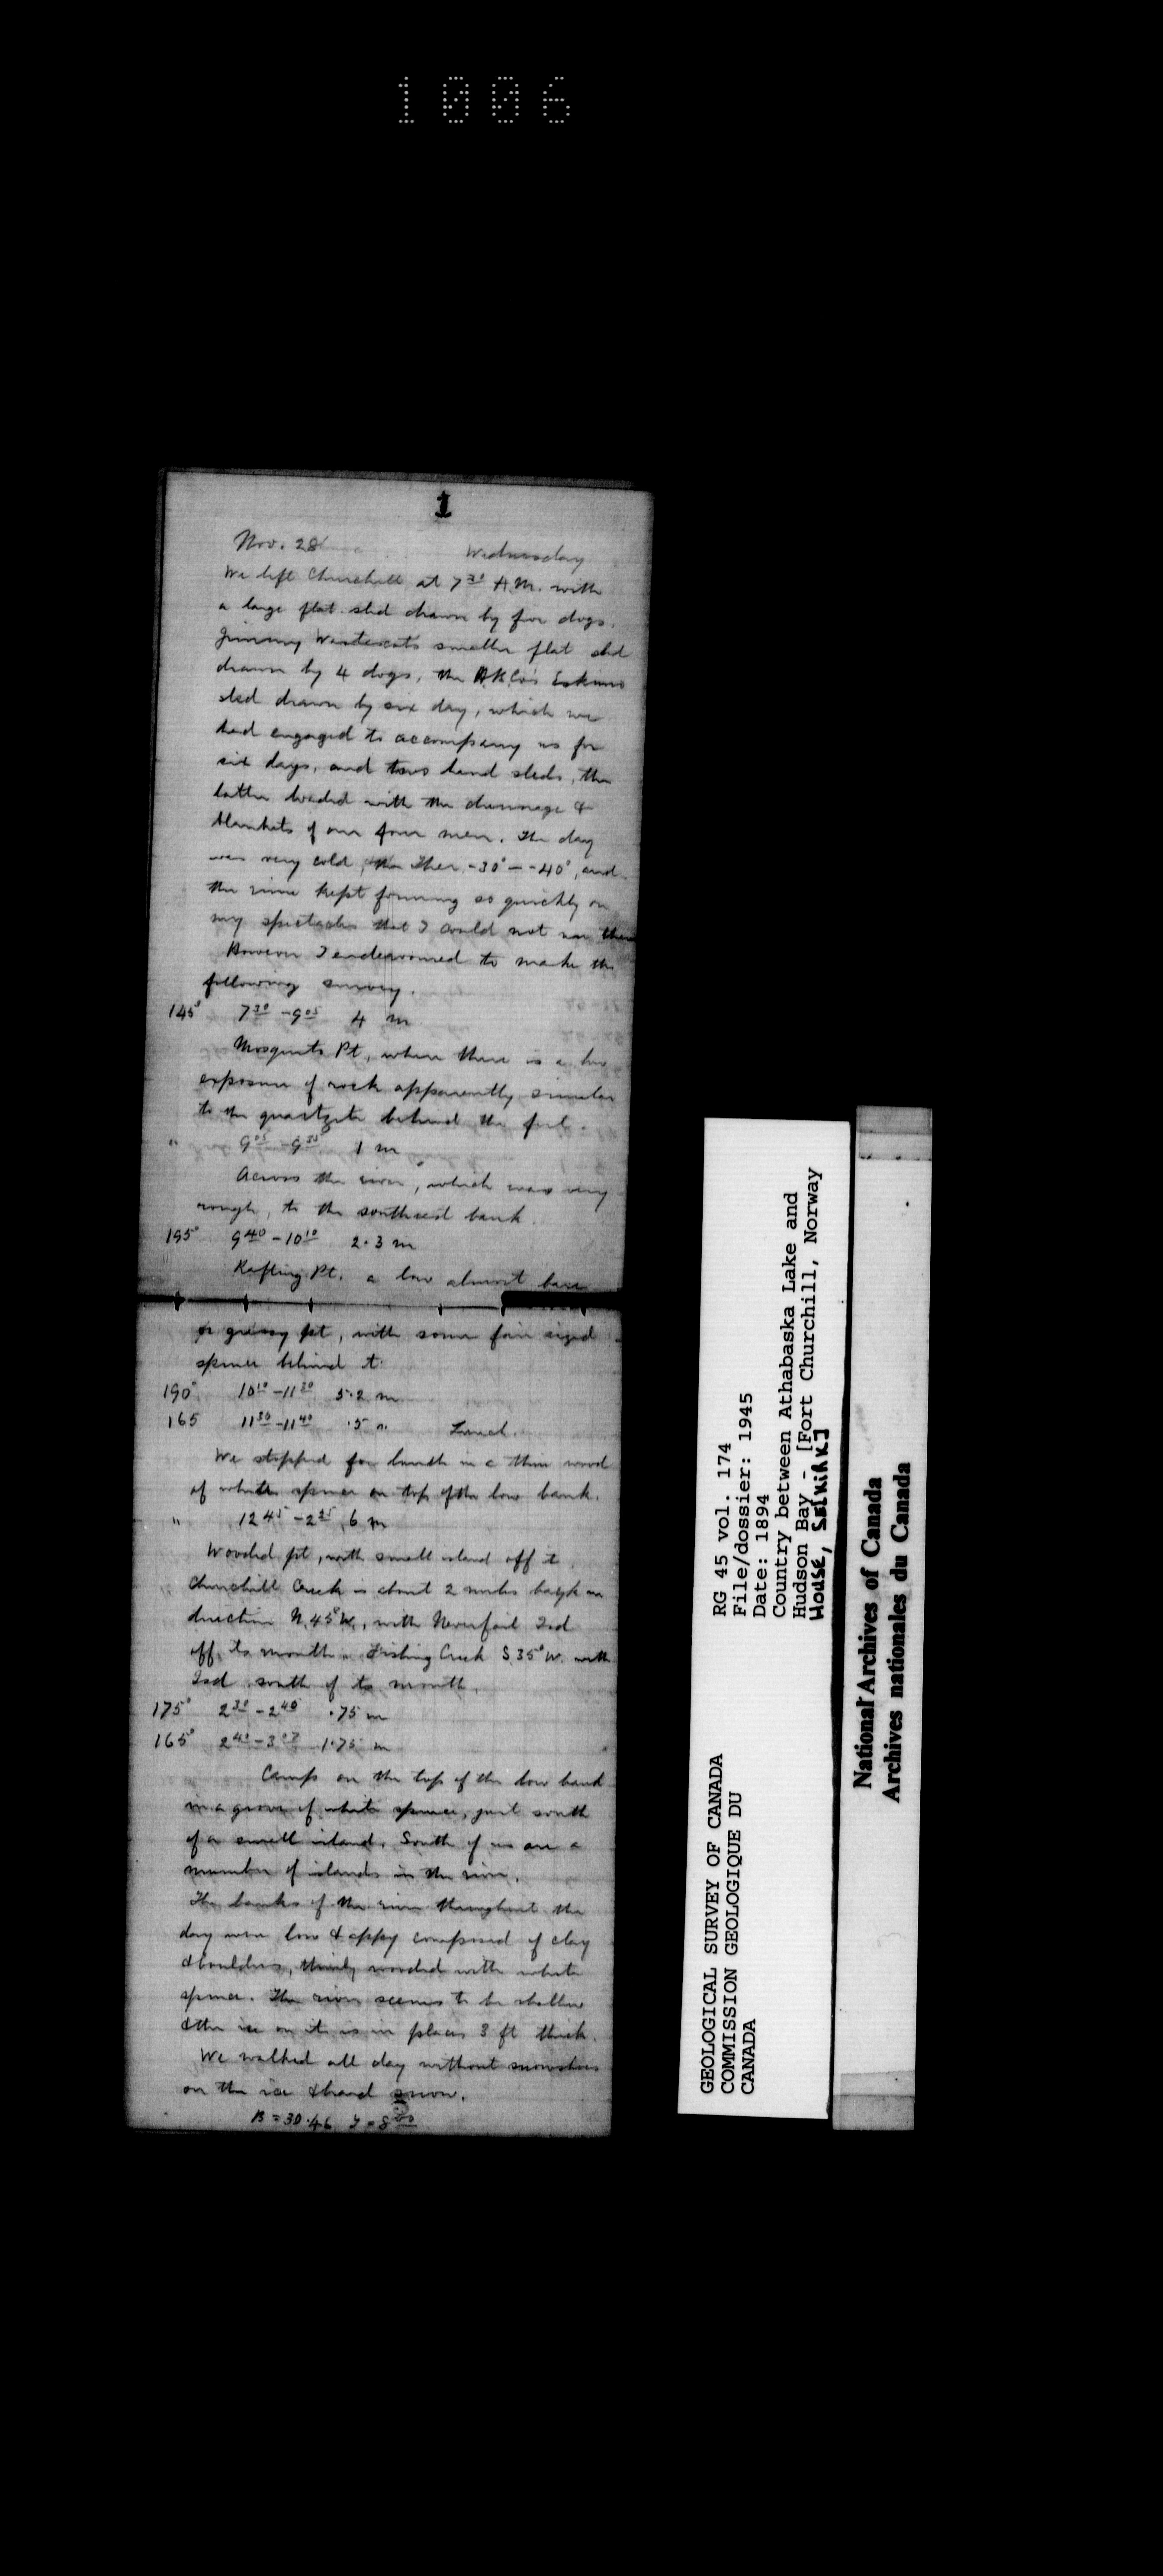 1006
1
Nov. 28 Wednesday
We left Churchill at 7 30 A.M. with
a large flat sled drawn by five dogs,
Jimmy smaller flat sled
drawn by 4 dogs, the Eskimo
sled drawn by six day, which we
had engaged to accompany us for
six days, and two hand sleds, the
latter loaded with the dunnage &
blankets of our four men. The day
was very cold, the Ther. -30° - -40°, and
the rime kept forming so quickly on
my spectacles that I could not use them
However I endeavoured to make the
following survey.
145° 7 30 - 9 05 4 m
Mosquito Pt, where there is a low
exposure of rock apparently similar
to the quartzite behind the fort.
" 9 05 - 9 35 1 m
Across the river, which was very
rough, to the southwest bank.
195° 9 40 - 10 10 2.3 m
Rafting Pt. a low almost bare
or grassy pt, with some fair sized
spruce behind it.
190° 10 10 - 11 30 5.2 m
165 11 30 - 11 40 .5 m Lunch.
We stopped for lunch in a thin wood
of white spruce on top of the low bank.
" 12 45 - 2 25 6 m
Wooded pt, with small island off it.
Churchill Creek is about 2 miles back in
direction N.45°W., with Isd
off its mouth. Fishing Creek S.35°W. with
Isd south of its mouth.
175° 2 30 - 2 40 .75 m
165° 2 40 - 3 07 1.75 m
Camp on the top of the low bank
in a grove of white spruce, just south
of a small island. South of us are a
number of islands in the river.
The banks of the river throughout the
day were low & composed of clay
& boulders, thinly wooded with white
spruce. The river seems to be shallow
& the ice on it is in places 3 ft thick.
We walked all day without snowshoes
on the ice & hard snow.
B = 30.46
GEOLOGICAL SURVEY OF CANADA
COMMISSION GEOLOGIQUE DU
CANADA
RG 45 vol. 174
File/dossier: 1945
Date: 1894
Country between Athabaska Lake and
Hudson Bay - [Fort Churchill, Norway
House, Selkirk]
National Archives of Canada
Archives nationales du Canada